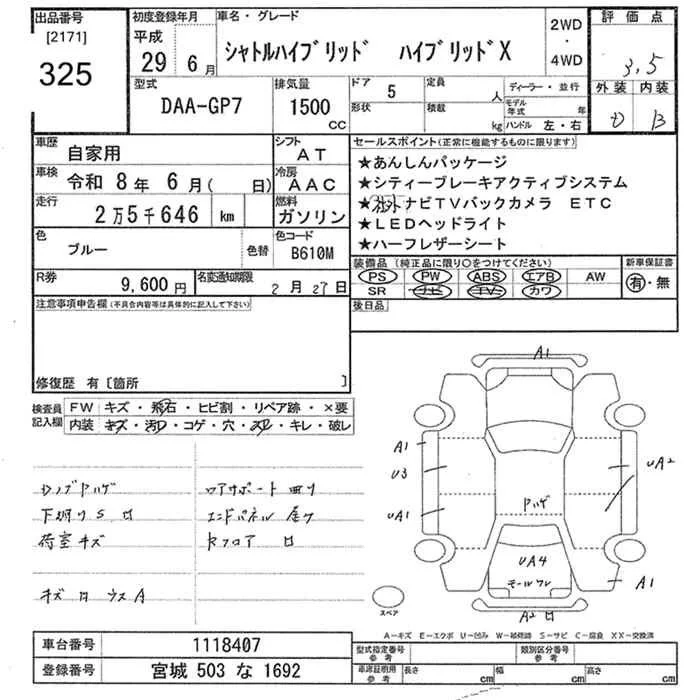 出品番号
[2171]
325
初度登録年月
平成
29 6月
車名・グレード
シャトルハイブリッド ハイブリッドX
2WD
・
4WD
評価点
3.5
外装 内装
B
型式
DAA-GP7
排気量
1500
CC
ドア
5
定員
人
形状
積載
kg
ディーラー・並行
モデル年式
年
ハンドル 左・右
車歴
自家用
シフト
AT
車検
令和 8年 6月( 日)
冷房
AAC
走行
2万5千646 km
燃料
ガソリン
色
ブルー
色替
色コード
B610M
R券
9,600円
名変通知期限
2月27日
セールスポイント(正常に機能するものに限ります)
★あんしんパッケージ
★シティーブレーキアクティブシステム
ナビTVバックカメラ ETC
★LEDヘッドライト
★ハーフレザーシート
装備品(純正品に限り〇をつけてください)
新車保証書
PS PW ABS エアB AW
SR ナビ TV カワ
有・無
注意事項申告欄(不具合内容等は具体的に記入して下さい)
後日品
修復歴 有〔箇所 〕
検査員
記入欄
FW キズ・飛石・ヒビ割・リペア跡・×要
内装 キズ・汚レ・コゲ・穴・スレ・キレ・破レ
下廻りS
荷室キズ
A1
A1
U3
UA1
UA2
UA4
A1
A2
スペア
A-キズ E-エクボ U-凹み W-補修跡 S-サビ C-腐食 XX-交換済
車台番号
1118407
登録番号
宮城 503 な 1692
型式指定番号
参考
類別区分番号
参考
車庫証明用
参考
長さ
cm
幅
cm
高さ
cm